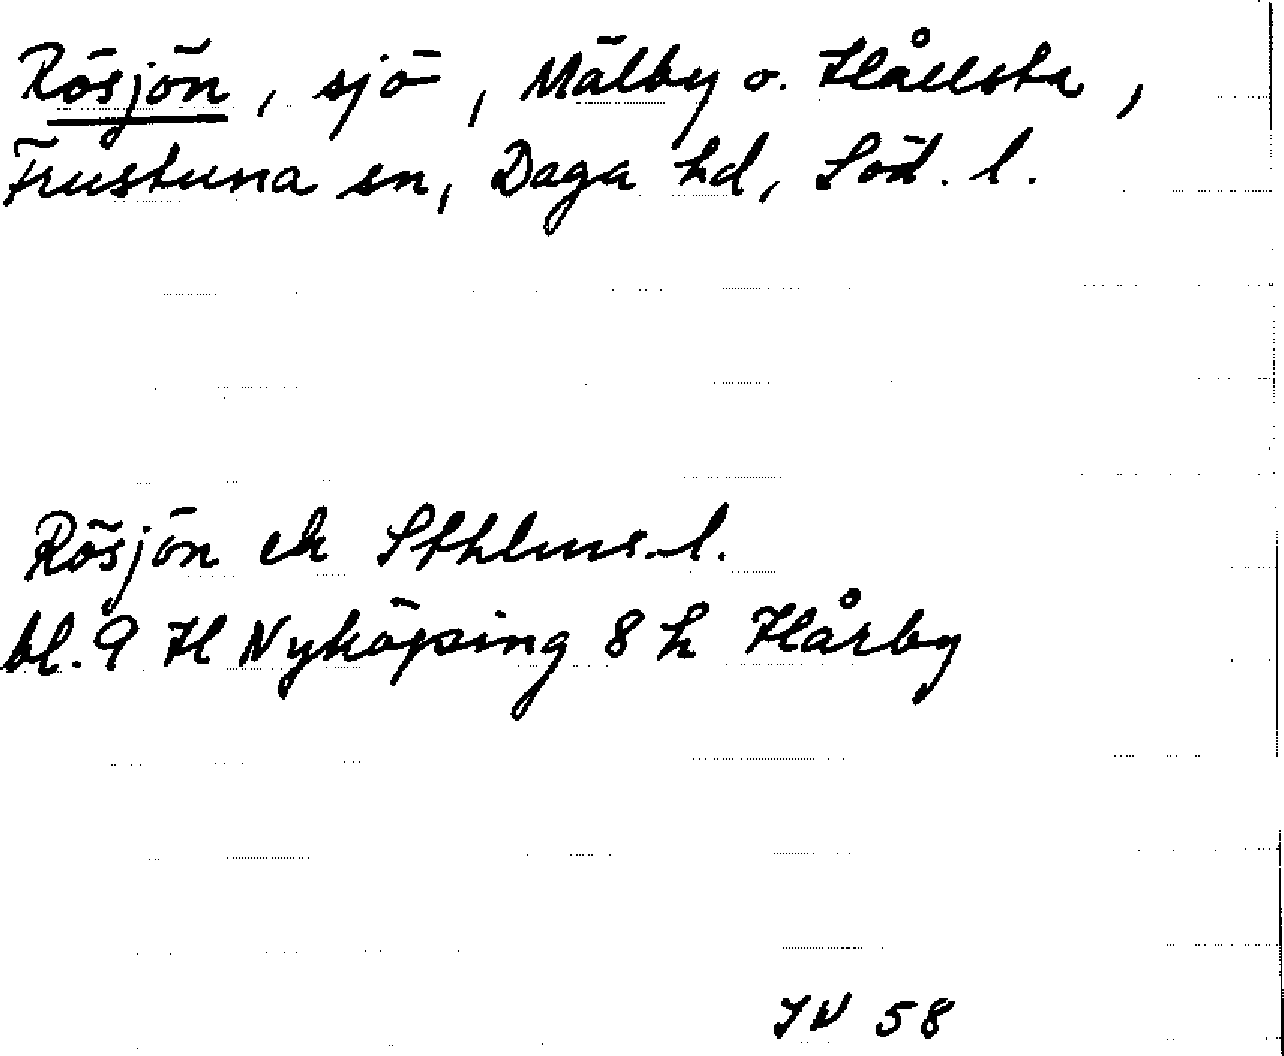 Rösjön, sjö, Mälby o. Hållsta,
Frustuna sn, Daga hd, Söd. l.
Rösjön ek Sthlms l.
bl. 9 H Nyköping 8 h Hårby
58